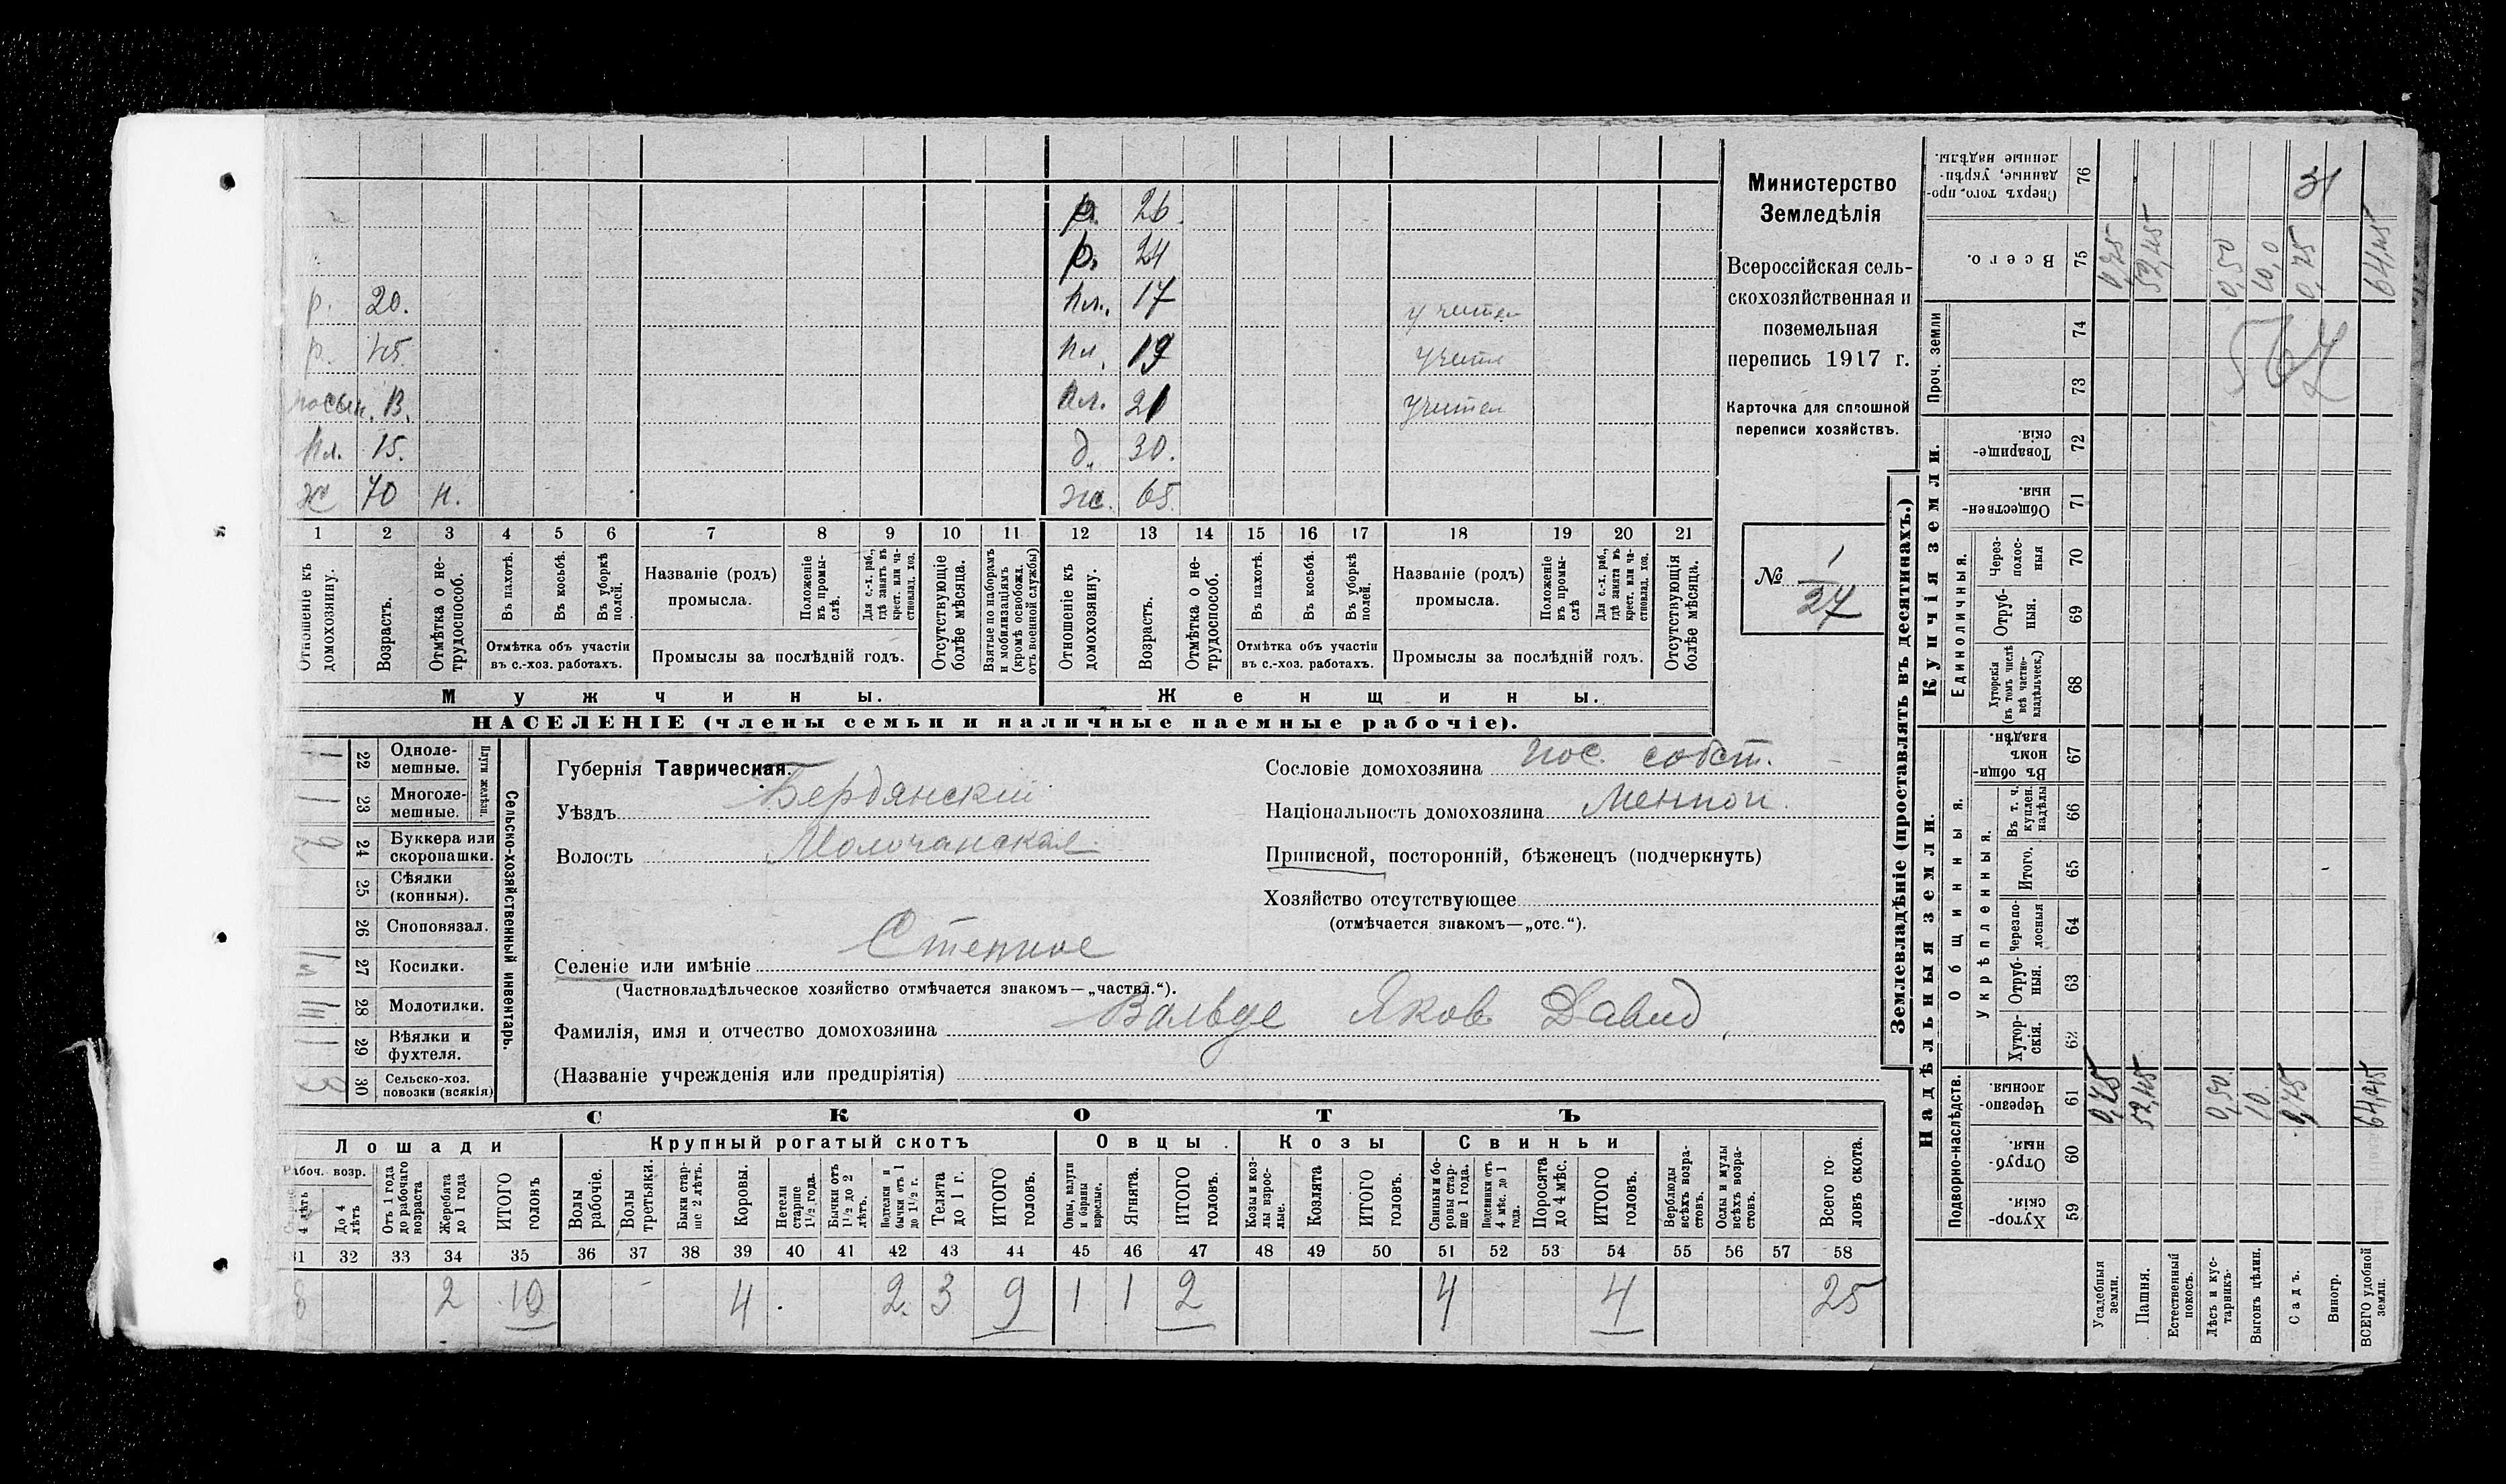 р. 26.
р. 24
р. 20. пл. 17 учител
р. 45. пл. 19 учител
В. пл. 21 учител
пл. 15. д. 30.
ж 70 н. ж. 65
1 2 3 4 5 6 7 8 9 10 11 12 13 14 15 16 17 18 19 20 21
Отношеніе къ домохозяину.
Возрастъ.
Отмѣтка о не-трудоспособ.
Въ пахотѣ.
Въ косьбѣ.
Въ уборкѣ полей.
Отмѣтка объ участіи
въ с.-хоз. работахъ.
Названіе (родъ)
промысла.
Положеніе въ промы-слѣ.
Для с.-х. раб., гдѣ занятъ въ крест. или ча-стновлад. хоз.
Промыслы за послѣдній годъ.
Отсутствующіе болѣе мѣсяца.
Взятые по наборамъ и мобилизаціямъ (кромѣ освобожд. отъ военной службы)
Отношеніе къ домохозяину.
Возрастъ.
Отмѣтка о не-трудоспособ.
Въ пахотѣ.
Въ косьбѣ.
Въ уборкѣ полей.
Отмѣтка объ участіи
въ с.-хоз. работахъ.
Названіе (родъ)
промысла.
Положеніе въ промы-слѣ
Для с.-х. раб., гдѣ занята въ крест. или ча-стновлад. хоз.
Промыслы за послѣдній годъ.
Отсутствующія болѣе мѣсяца.
Мужчины.
Женщины.
НАСЕЛЕНІЕ (члены семьи и наличные наемные рабочіе).
Министерство
Земледѣлія
Всероссійская сель-
скохозяйственная и
поземельная
перепись 1917 г.
Карточка для сплошной
переписи хозяйствъ.
№ 1
27
Сельско-хозяйственный инвентарь.
Плуги желѣзн.
22 Одноле-мешные. 1
23 Многоле-мешные. 1
24 Буккера или скоропашки. 2
25 Сѣялки (конныя).
26 Сноповязал.
27 Косилки.
28 Молотилки.
29 Вѣялки и фухтеля. 1
30 Сельско-хоз. повозки (всякія) 3
Губернія Таврическая.
Уѣздъ Бердянскій
Волость Молочанская
Селеніе или имѣніе Степное
(Частновладѣльческое хозяйство отмѣчается знакомъ—„частвл.“).
Фамилія, имя и отчество домохозяина Вальде Яков Давид
(Названіе учрежденія или предпріятія)
Сословіе домохозяина пос. собст.
Національность домохозяина Меннон.
Приписной, посторонній, бѣженецъ (подчеркнуть)
Хозяйство отсутствующее
(отмѣчается знакомъ—„отс.“).
СКОТЪ
Лошади
Крупный рогатый скотъ
Овцы.
Козы
Свиньи
Рабоч. возр.
4 лѣтъ
До 4 лѣтъ
Отъ 1 года до рабочаго возраста
Жеребята до 1 года
ИТОГО головъ
Волы рабочіе.
Волы третьяки.
Быки стар-ше 2 лѣтъ.
Коровы.
Нетели старше 1½ года.
Бычки отъ 1½ до 2 лѣтъ.
Подтелки и бычки отъ 1 до 1½ г.
Телята до 1 г.
ИТОГО головъ.
Овцы, валухи и бараны взрослые.
Ягнята.
ИТОГО головъ.
Козы и коз-лы взрос-лые.
Козлята
ИТОГО головъ.
Свиньи и бо-ровы стар-ше 1 года.
Подсвинки отъ 4 мѣс. до 1 года.
Поросята до 4 мѣс.
ИТОГО головъ.
Верблюды всѣхъ возра-стовъ.
Ослы и мулы всѣхъ возра-стовъ.
Всего го-ловъ скота.
31 32 33 34 35 36 37 38 39 40 41 42 43 44 45 46 47 48 49 50 51 52 53 54 55 56 57 58
8 2 10 4 2. 3 9 1 1 2 4 4 25
Землевладѣніе (проставлять въ десятинахъ.)
Надѣльныя земли.
Купчія земли.
Проч. земли
Подворно-наслѣдств.
Общинныя.
Укрѣпленныя.
Единоличныя.
76 Сверхъ того, про-данные, укрѣп-ленные надѣлы.
75 Всего.
74
73
72 Товарище-скія
71 Обществен-ныя.
70 Через-полос-ныя
69 Отруб-ныя.
68 Хуторскія (въ томъ числѣ всѣ частно-владѣльческ.)
67 Въ общин-номъ владѣн.
66 Въ т. ч. куплен. надѣлы
65 Итого.
64 Черезпо-лосныя
63 Отруб-ныя.
62 Хутор-скія.
61 Черезпо-лосныя.
60 Отруб-ныя.
59 Хутор-скія.
Усадебныя земли. 0,75 0,75
Пашня. 52,45 52,45
Естественный покосъ.
Лѣсъ и кус-тарникъ. 0,50 0,50
Выгонъ цѣлин. 10. 10,0
Садъ. 0,75 0,75
Виногр.
ВСЕГО удобной земли. 64,45 64,45
31
567